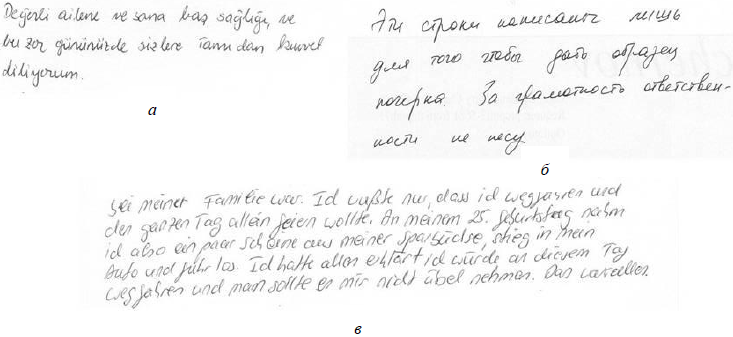 Değerli ailene ve sana baş sağlığı, ve
bu zor gününüzde sizlere Tanrıdan kuvvet
diliyorum.
а
Эти строки написаны лишь
для того чтобы дать образец
почерка. За грамотность ответствен-
ности не несу
б
bei meiner Familie war. Ich wußte nur, dass ich wegfahren und
den ganzen Tag allein feiern wollte. An meinem 25. Geburtstag nahm
ich also ein paar Scheine aus meiner Sparbüchse, stieg in mein
Auto und fuhr los. Ich hatte allen erklärt ich würde an diesem Tag
wegfahren und man sollte es mir nicht übel nehmen. Das war allen.
в